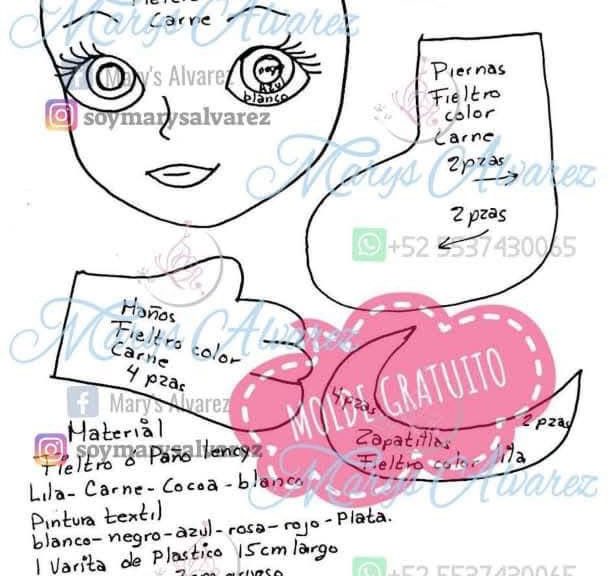 Fieltro
Carne
Marys Alvarez
Mary's Alvarez
soymarysalvarez
negro
Azul
blanco
Piernas
Fieltro
color
Carne
2pzas
2 pzas
Marys Alvarez
+52 5537430065
Manos
Fieltro color
Carne
4 pzas
Marys Alvarez
MOLDE GRATUITO
4 pzas
2 pzas
Zapatillas
Fieltro color lila
Mary's Alvarez
soymarysalvarez
Marys Alvarez
Material
Fieltro ó Paño Lency
Lila - Carne - Cocoa - blanco
Pintura textil
blanco - negro - azul - rosa - rojo - Plata.
1 Varita de Plastico 15cm largo
+52 5537430065